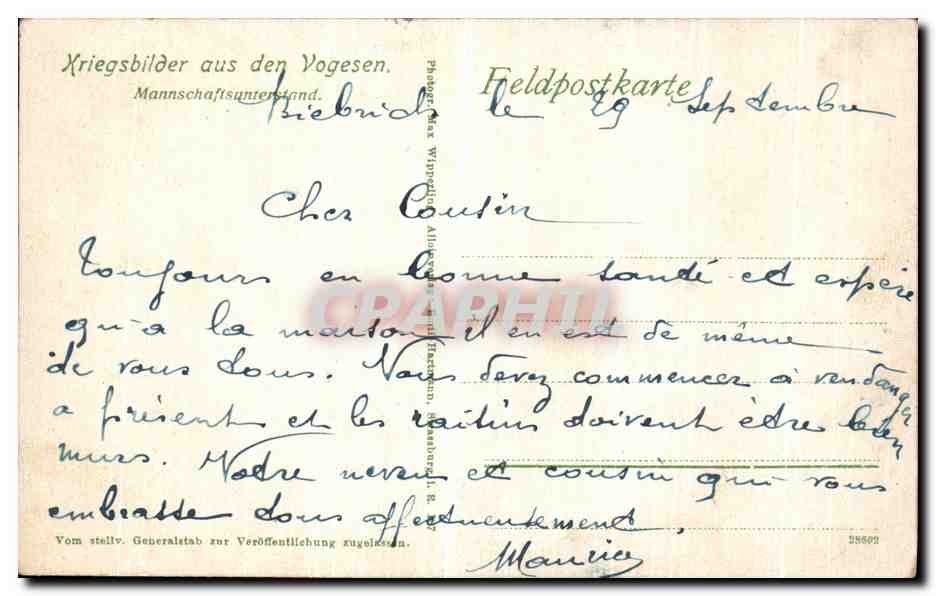 Kriegsbilder aus den Vogesen.
Mannschaftsunterstand.
Feldpostkarte
Biebrich le 29 Septembre
Cher Cousin
Toujours en bonne santé et espère
qu'a la maison il en est de même
de vous tous. Vous devez commencer a vendanger
a présent et les raisins doivent être bien
murs. Votre neveu et cousin qui vous
embrasse tous affectueusement,
Maurice
Photogr. Max Wipperling,
Hartmann, Strassburg i. E.
Vom stellv. Generalstab zur Veröffentlichung zugelassen.
28602
CPAPHIL